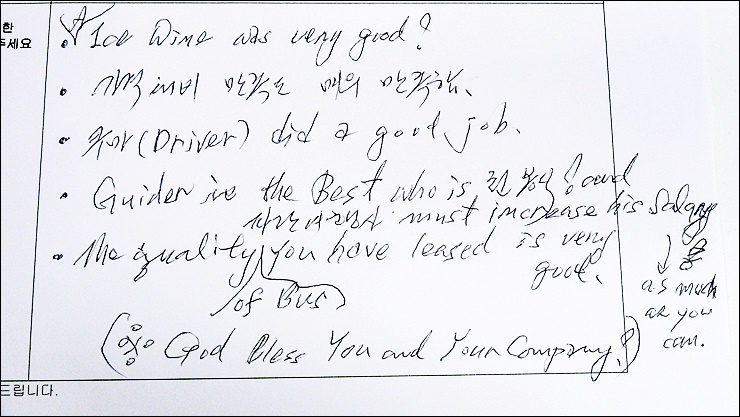 한
주세요
☆ Ice Wine was very good!
• 가격 대비 만족도 매우 만족함.
• (Driver) did a good job.
• Guider is the Best who is ! and
must increase his Salary
as much
as you
can.
• The quality you have leased is very
good.
of Bus
(God Bless You and Your Company!)
드립니다.